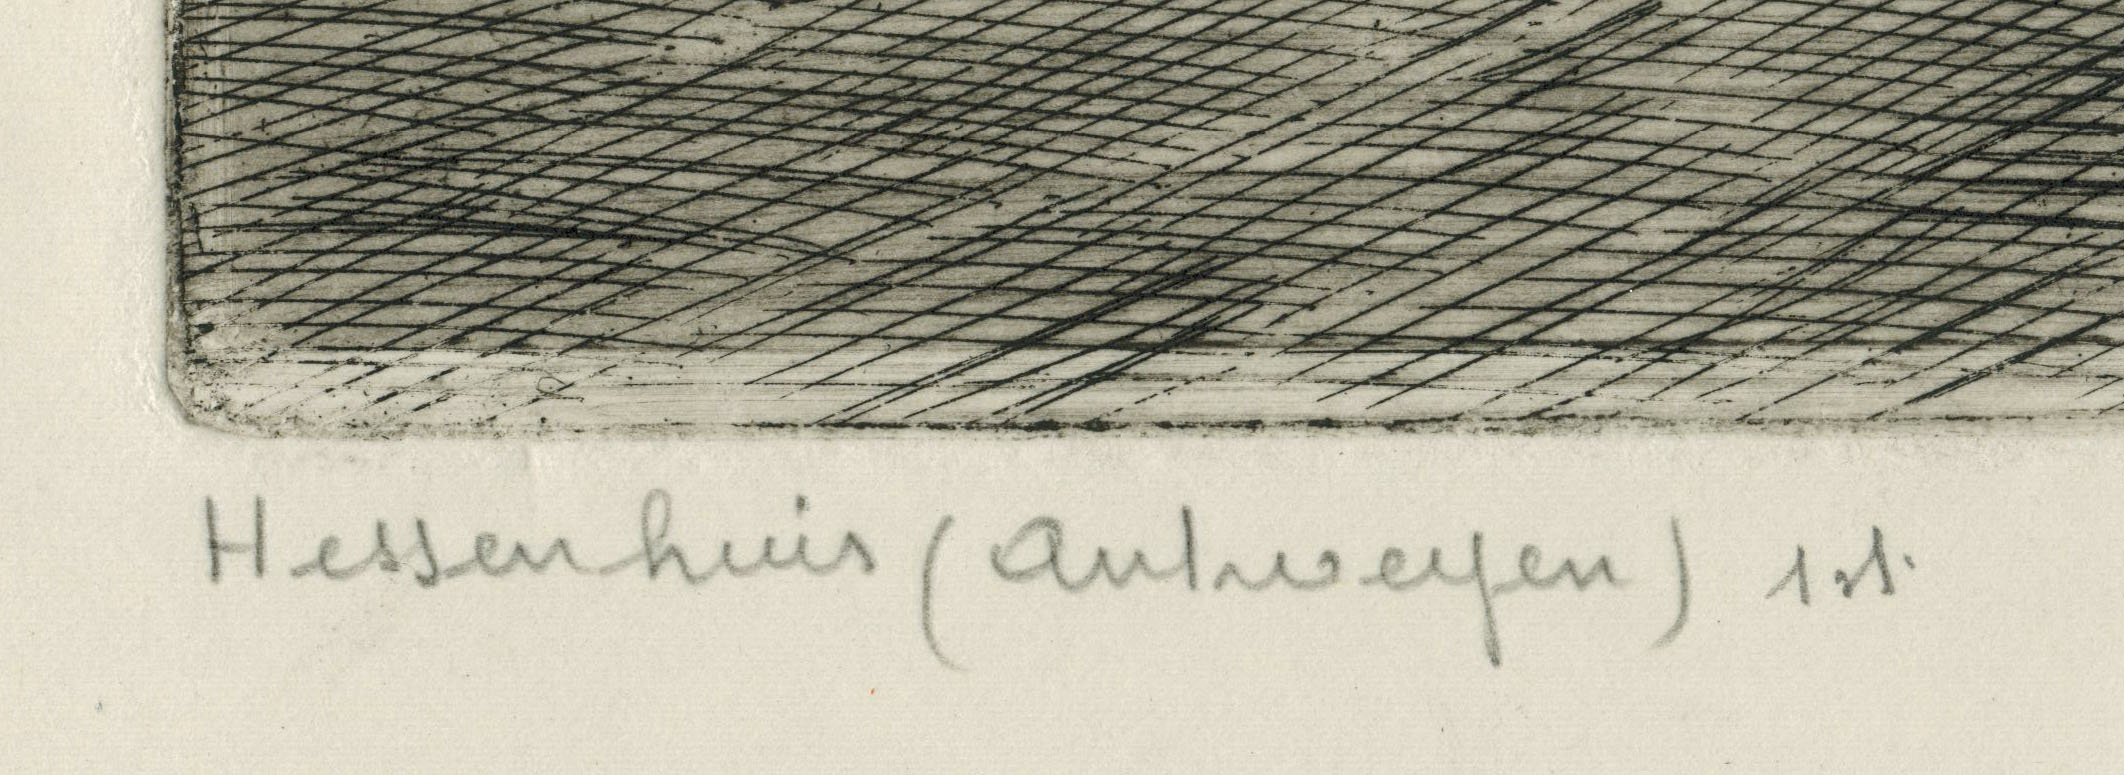 Hessenhuis (Antwerpen) 1st.